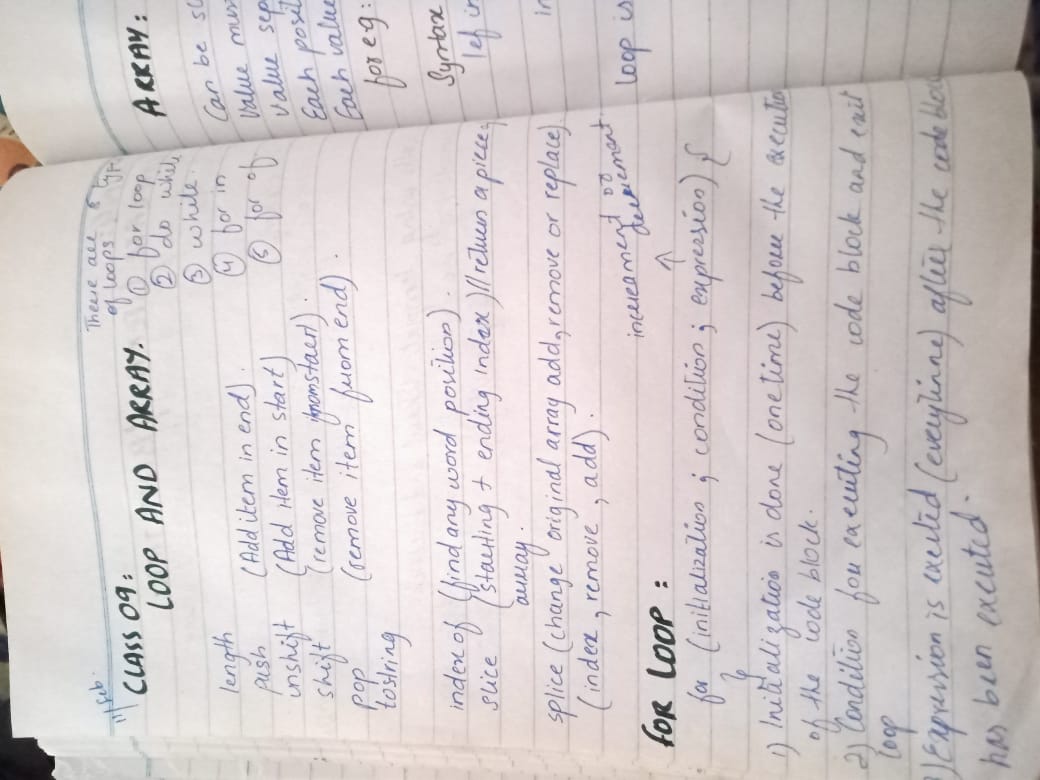 11/Feb.
CLASS 09:
LOOP AND ARRAY.
There are 5
of loops
① for loop
② do while
③ while.
④ for in
⑤ for of
length
push (Add item in end).
unshift (Add item in start)
shift (remove item from start).
pop (remove item from end).
tostring
index of (find any word position)
slice (starting + ending index) // return a piece,
array.
splice (change original array add, remove or replace).
(index, remove, add).
increament or
decrement
FOR LOOP:
for (initialization ; condition ; expression) {
1) Initialization is done (one time) before the execution
of the code block.
2) Condition for executing the code block and exit
loop
) Expression is executed (everytime) after the code block
has been executed.
ARRAY:
Can be
Value
Value
Each
Each value
for eg:
Syntax
let
in
loop is